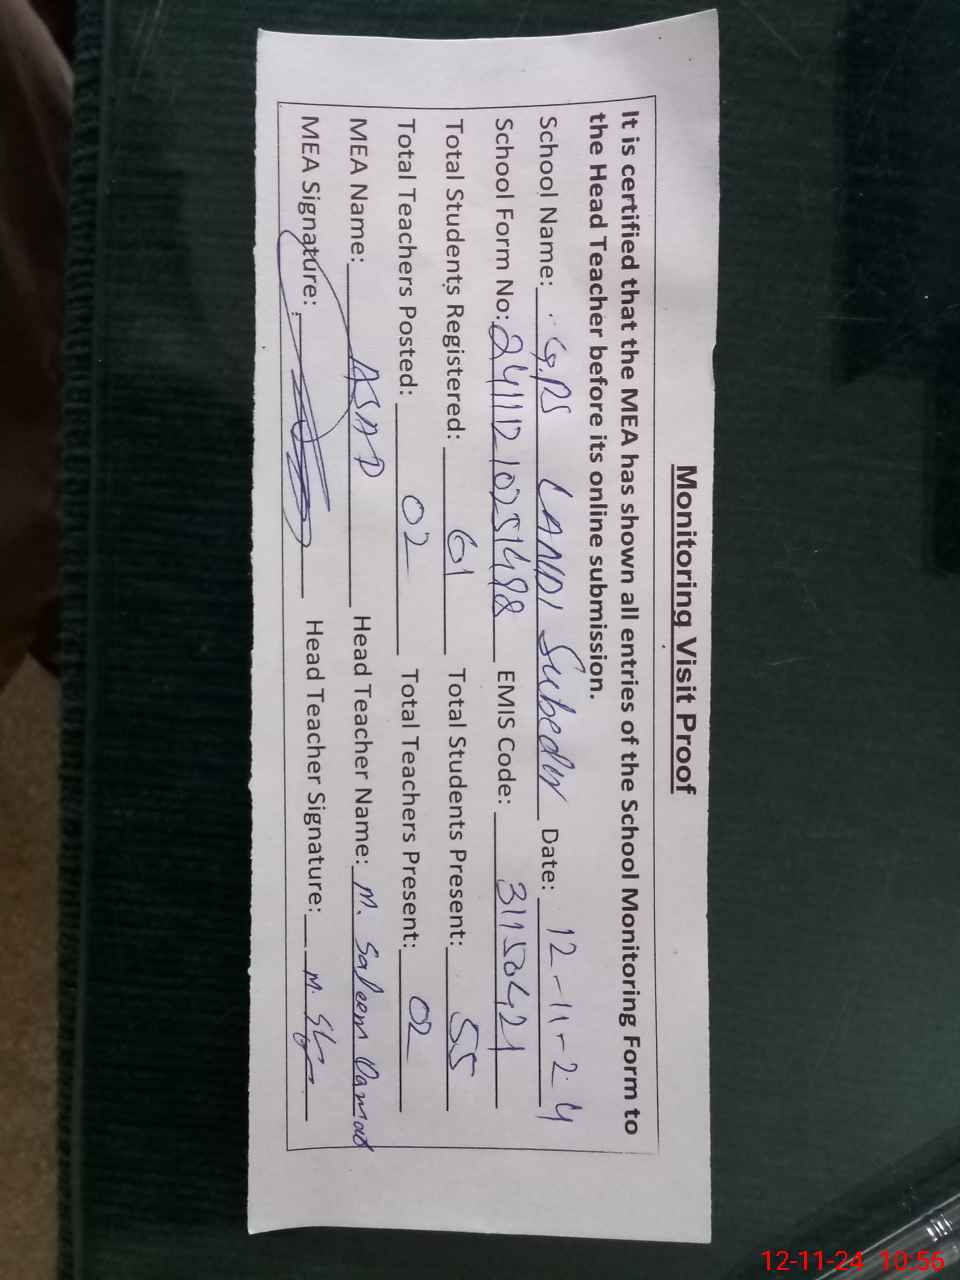 Monitoring Visit Proof
It is certified that the MEA has shown all entries of the School Monitoring Form to
the Head Teacher before its online submission.
School Name: G.PS LANDI Subedar Date: 12-11-24
School Form No: 24111210251488 EMIS Code: 31150421
Total Students Registered: 61 Total Students Present: 55
Total Teachers Posted: 02 Total Teachers Present: 02
MEA Name: ASAD Head Teacher Name: M. Saleem
MEA Signature: Head Teacher Signature: M.
12-11-24 10:56